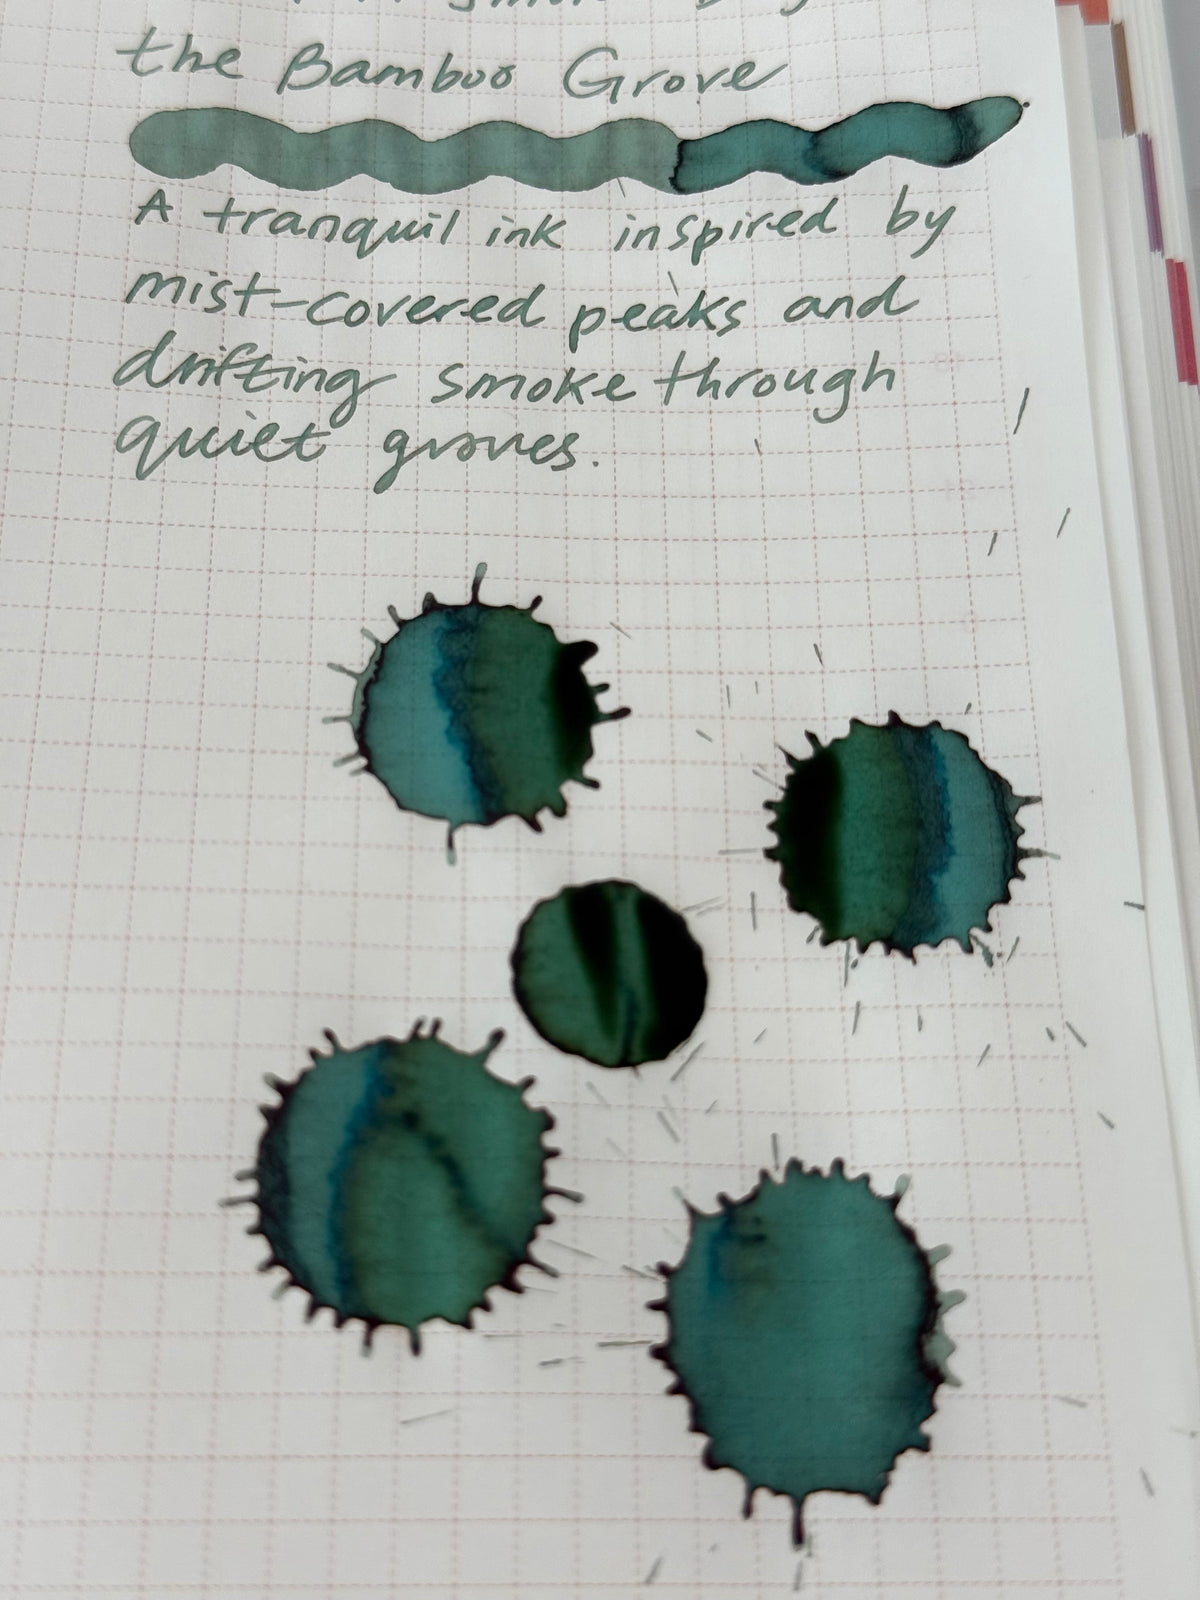 the Bamboo Grove
A tranquil ink inspired by
mist-covered peaks and
drifting smoke through
quiet groves.